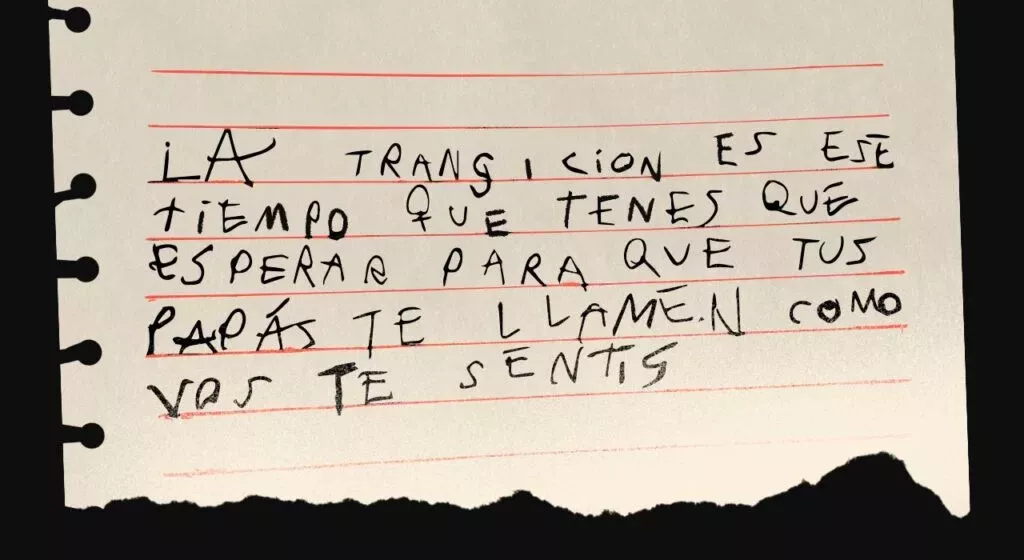 LA TRANSICION ES ESE
TIEMPO QUE TENES QUE
ESPERAR PARA QUE TUS
PAPÁS TE LLAMEN COMO
VOS TE SENTIS